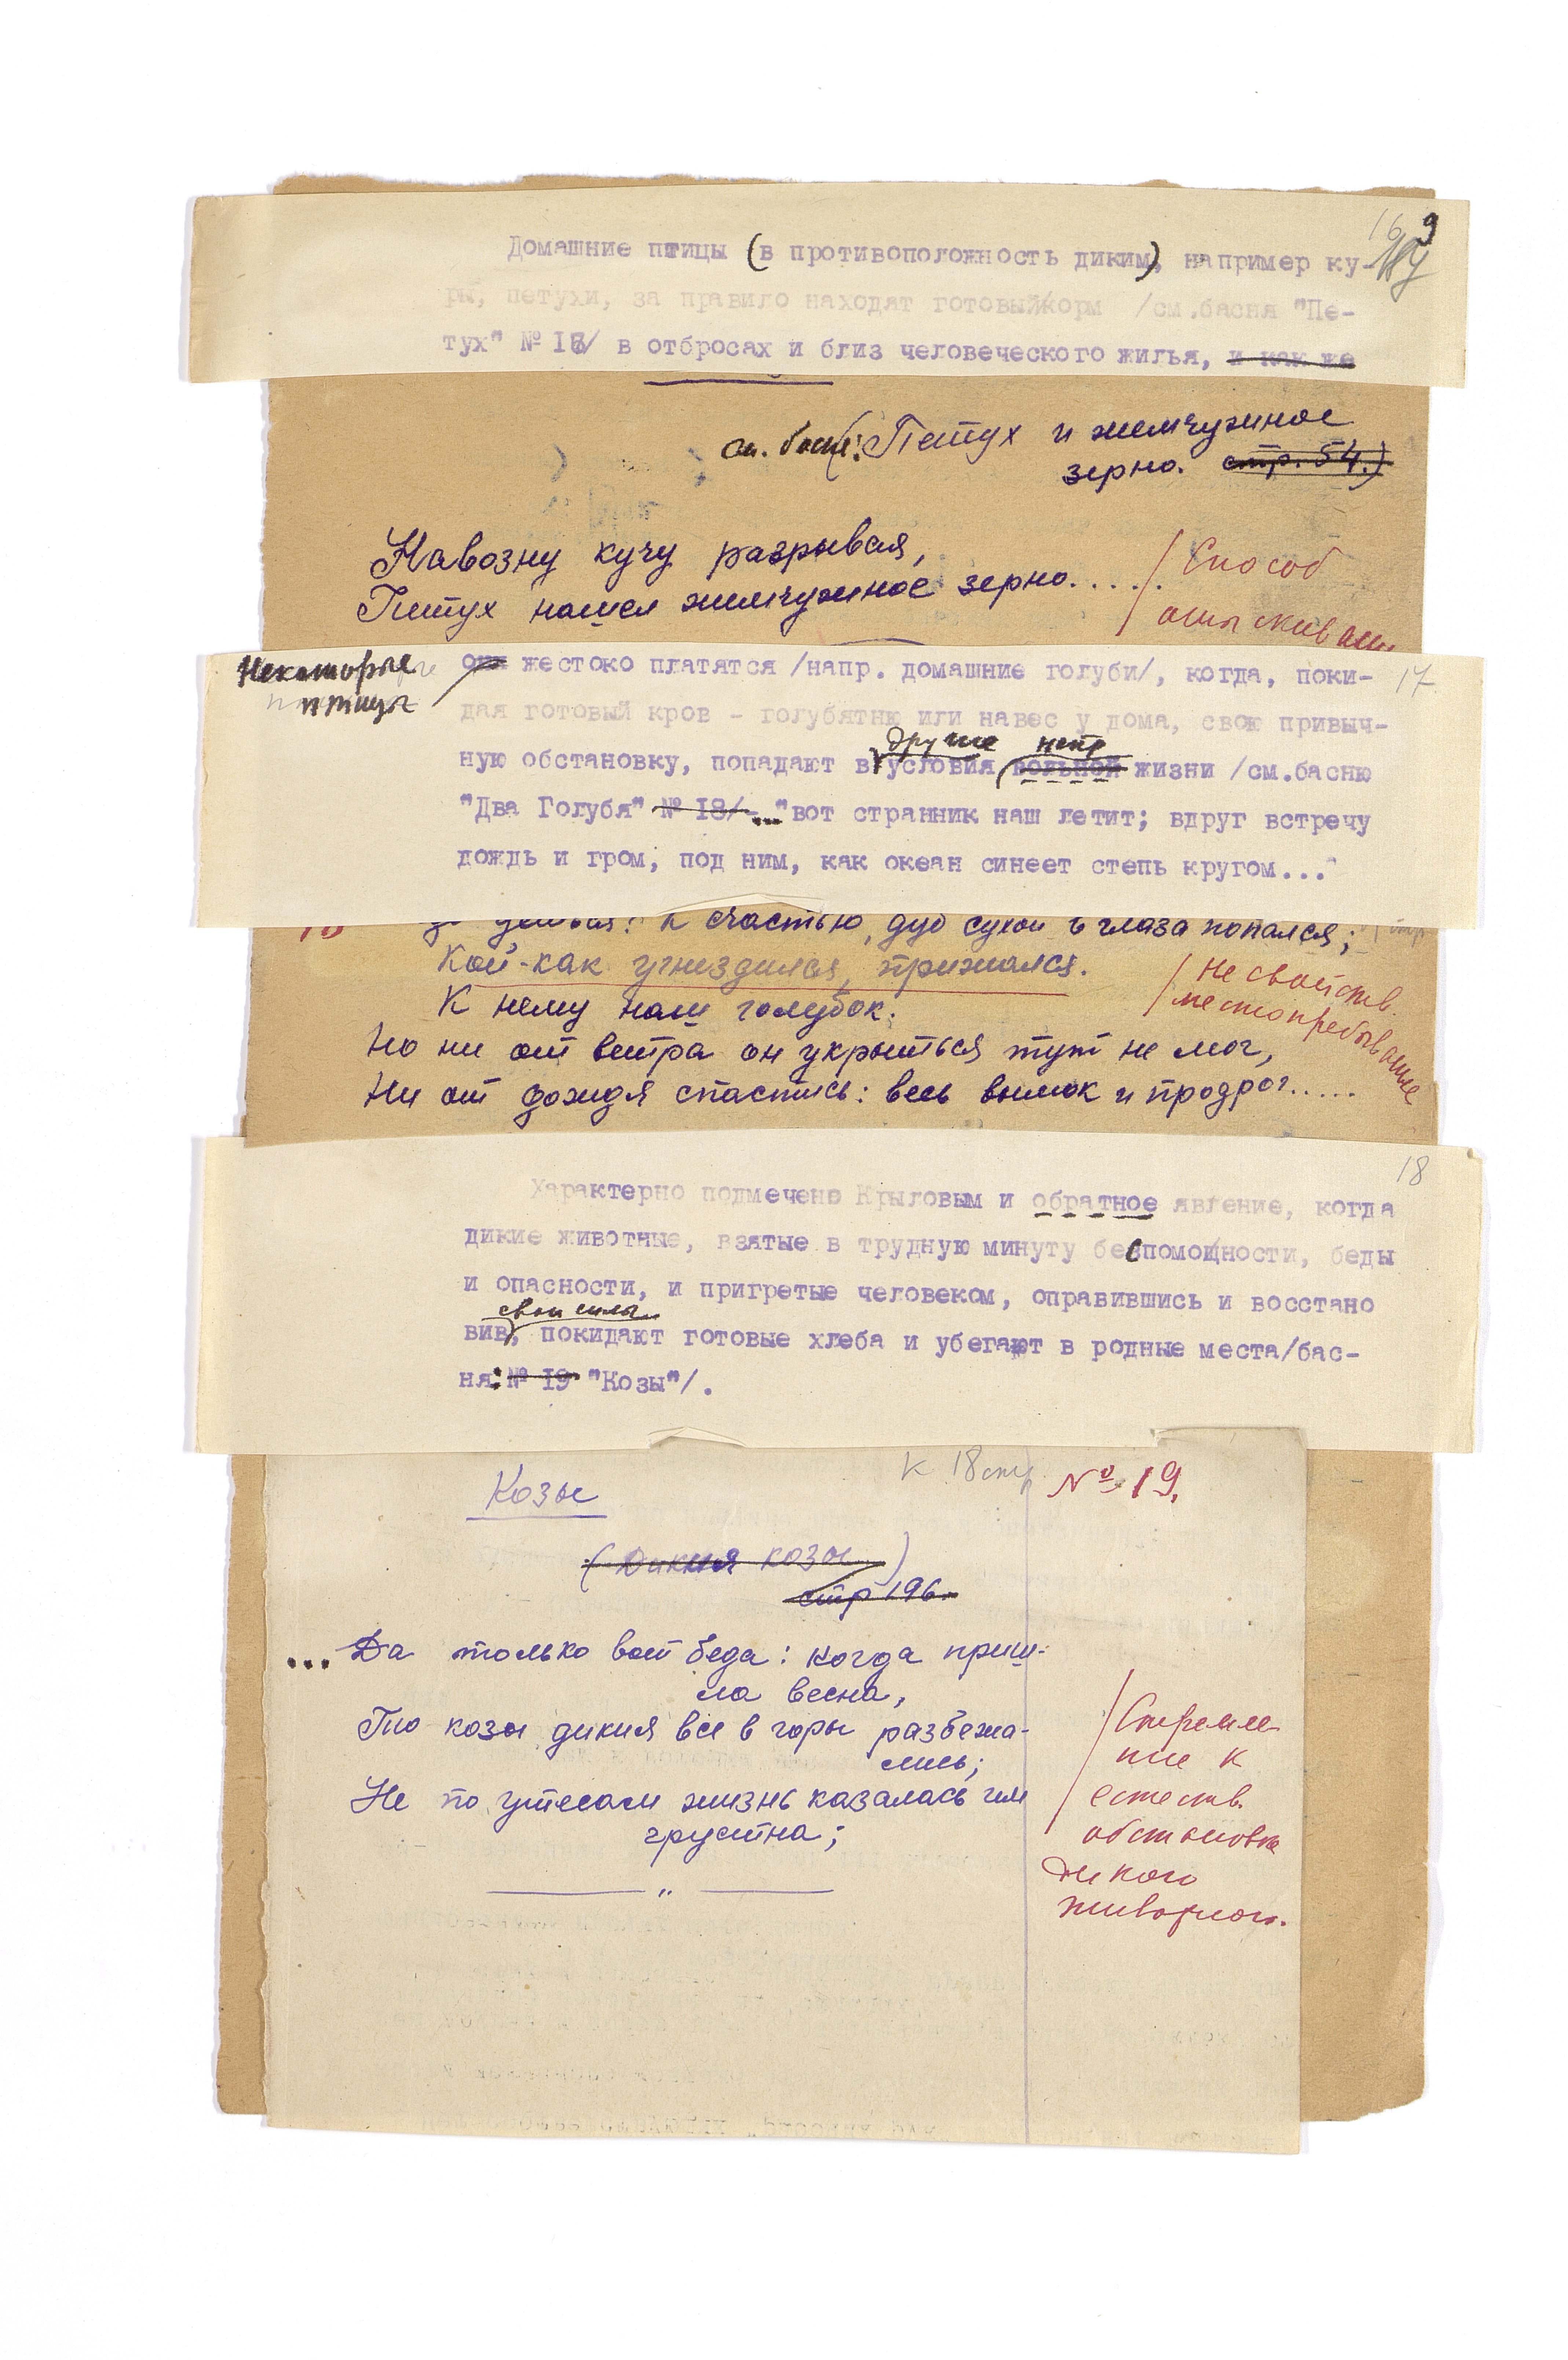 16 9
Домашние птицы (в противоположность диким), например ку-
ры, петухи, за правило находят готовый корм /см.басня "Пе-
тух" № 17/ в отбросах и близ человеческого жилья, и как же
см. басн: (Петух и жемчужное
зерно. стр. 54.)
Навозну кучу разрывая,
Петух нашел жемчужное зерно.....
/ Способ
отыскивани
Некоторые
птицы
они жестоко платятся /напр. домашние голуби/, когда, поки-
17
дая готовый кров - голубятню или навес у дома, свою привыч-
другие непр
ную обстановку, попадают в условия вольной жизни /см.басню
"Два Голубя" № 18/-..."вот странник наш летит; вдруг встречу
дождь и гром, под ним, как океан синеет степь кругом..."
К счастью, дуб сухой в глаза попался;
Кой-как угнездился, прижался.
К нему наш голубок.
Но ни от ветра он укрыться тут не мог,
Ни от дождя спастись: весь вымок и продрог.....
/ Не свойств.
местопребывание
18
Характерно подмечено Крыловым и обратное явление, когда
дикие животные, взятые в трудную минуту беспомощности, беды
и опасности, и пригретые человеком, оправившись и восстано
свои силы
вив, покидают готовые хлеба и убегают в родные места/бас-
ня: № 19 "Козы"/.
К 18 стр
№ 19.
Козы
(Дикия козы)
стр 196.
... Да только вот беда: когда приш-
ла весна,
То козы дикия все в горы разбежа-
лись;
Не по утесам жизнь казалась им
грустна;
/ Стремле-
ние к
естеств.
обстановке
дикого
животного.